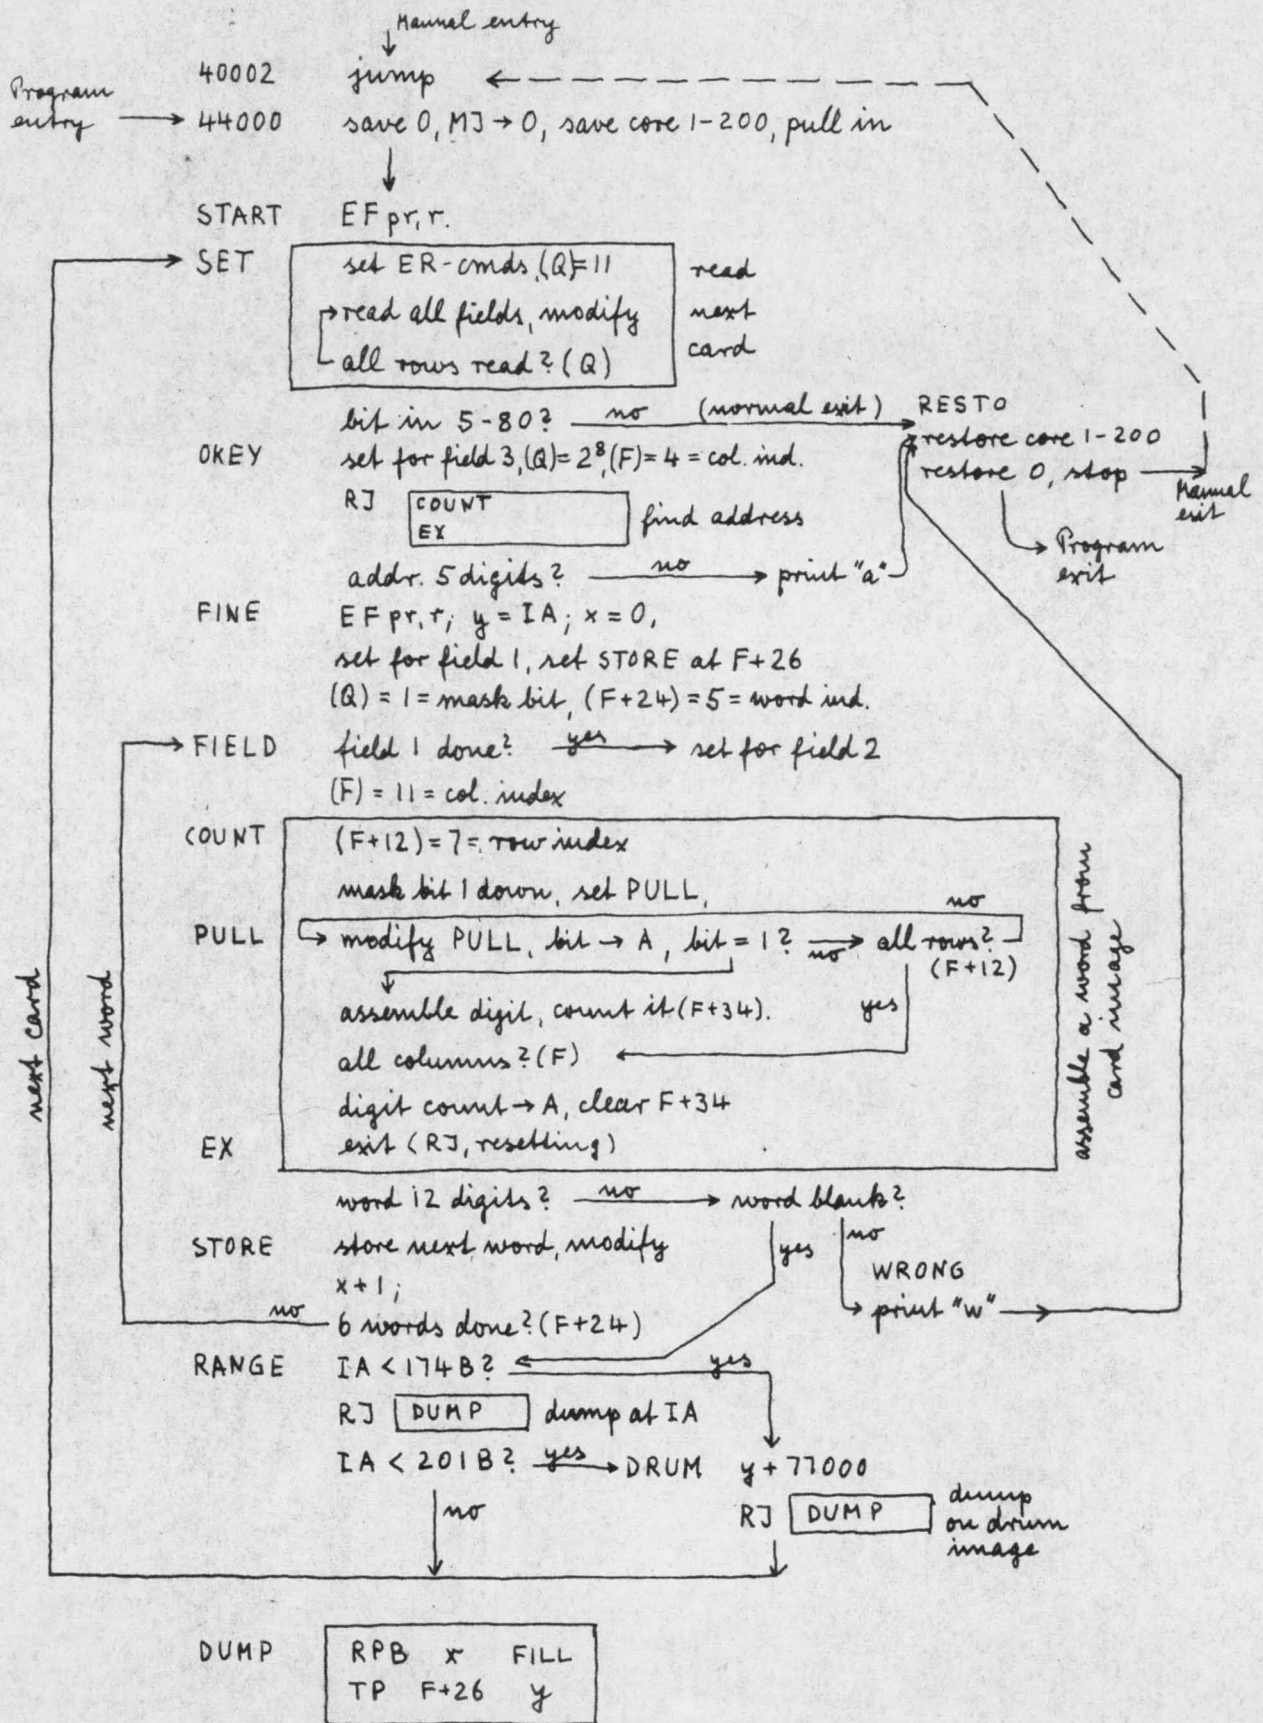 Manual entry
40002 jump
Program entry
44000 save 0, MJ → 0, save core 1-200, pull in
START EF pr, r.
SET set ER-cmds, (Q)=11
read all fields, modify
all rows read? (Q)
read next card
bit in 5-80? no (normal exit) RESTO
restore core 1-200
OKEY set for field 3, (Q)=2⁸, (F)=4=col. ind.
restore 0, stop
Manual exit
RJ COUNT EX find address
Program exit
addr. 5 digits? no print "a"
FINE EF pr, r; y = IA; x = 0,
set for field 1, set STORE at F+26
(Q) = 1 = mask bit, (F+24) = 5 = word ind.
FIELD field 1 done? yes set for field 2
(F) = 11 = col. index
COUNT (F+12) = 7 = row index
mask bit 1 down, set PULL,
no
PULL modify PULL, bit → A, bit = 1? no all rows?
(F+12)
assemble digit, count it (F+34). yes
all columns? (F)
digit count → A, clear F+34
EX exit (RJ, resetting)
assemble a word from card image
next card
next word
word 12 digits? no word blank?
STORE store next word, modify
yes no
x+1;
WRONG
print "w"
no 6 words done? (F+24)
RANGE IA < 174B? yes
RJ DUMP dump at IA
IA < 201B? yes DRUM y + 77000
no
RJ DUMP dump on drum image
DUMP RPB x FILL
TP F+26 y